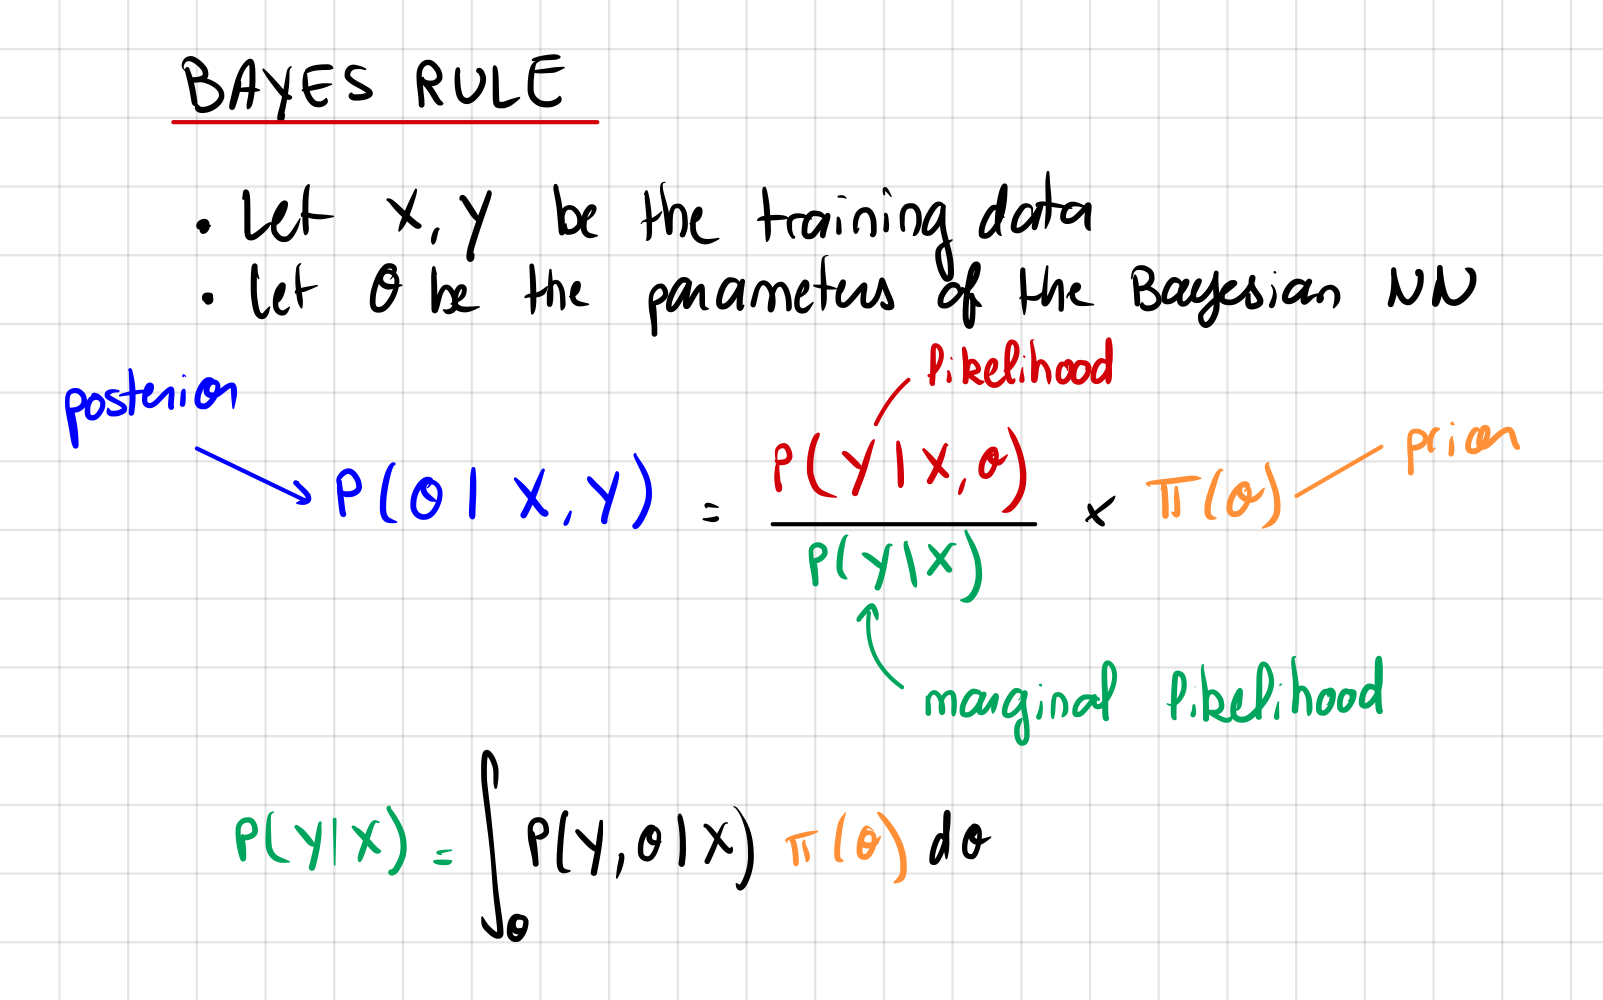 BAYES RULE
• Let X, Y be the training data
• Let θ be the parameters of the Bayesian NN
likelihood
posterior
prior
P(θ | X, Y) = P(Y | X, θ) / P(Y | X) × π(θ)
marginal likelihood
P(Y | X) = ∫_θ P(Y, θ | X) π(θ) dθ